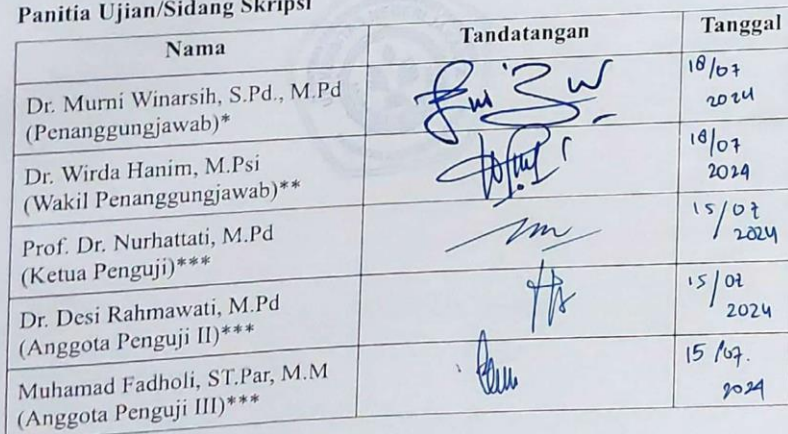 Panitia Ujian/Sidang Skripsi
Nama Tandatangan Tanggal
Dr. Murni Winarsih, S.Pd., M.Pd 18/07
(Penanggungjawab)* 2024
Dr. Wirda Hanim, M.Psi 18/07
(Wakil Penanggungjawab)** 2024
Prof. Dr. Nurhattati, M.Pd 15/07
(Ketua Penguji)*** 2024
Dr. Desi Rahmawati, M.Pd 15/07
(Anggota Penguji II)*** 2024
Muhamad Fadholi, ST.Par, M.M 15/07.
(Anggota Penguji III)*** 2024